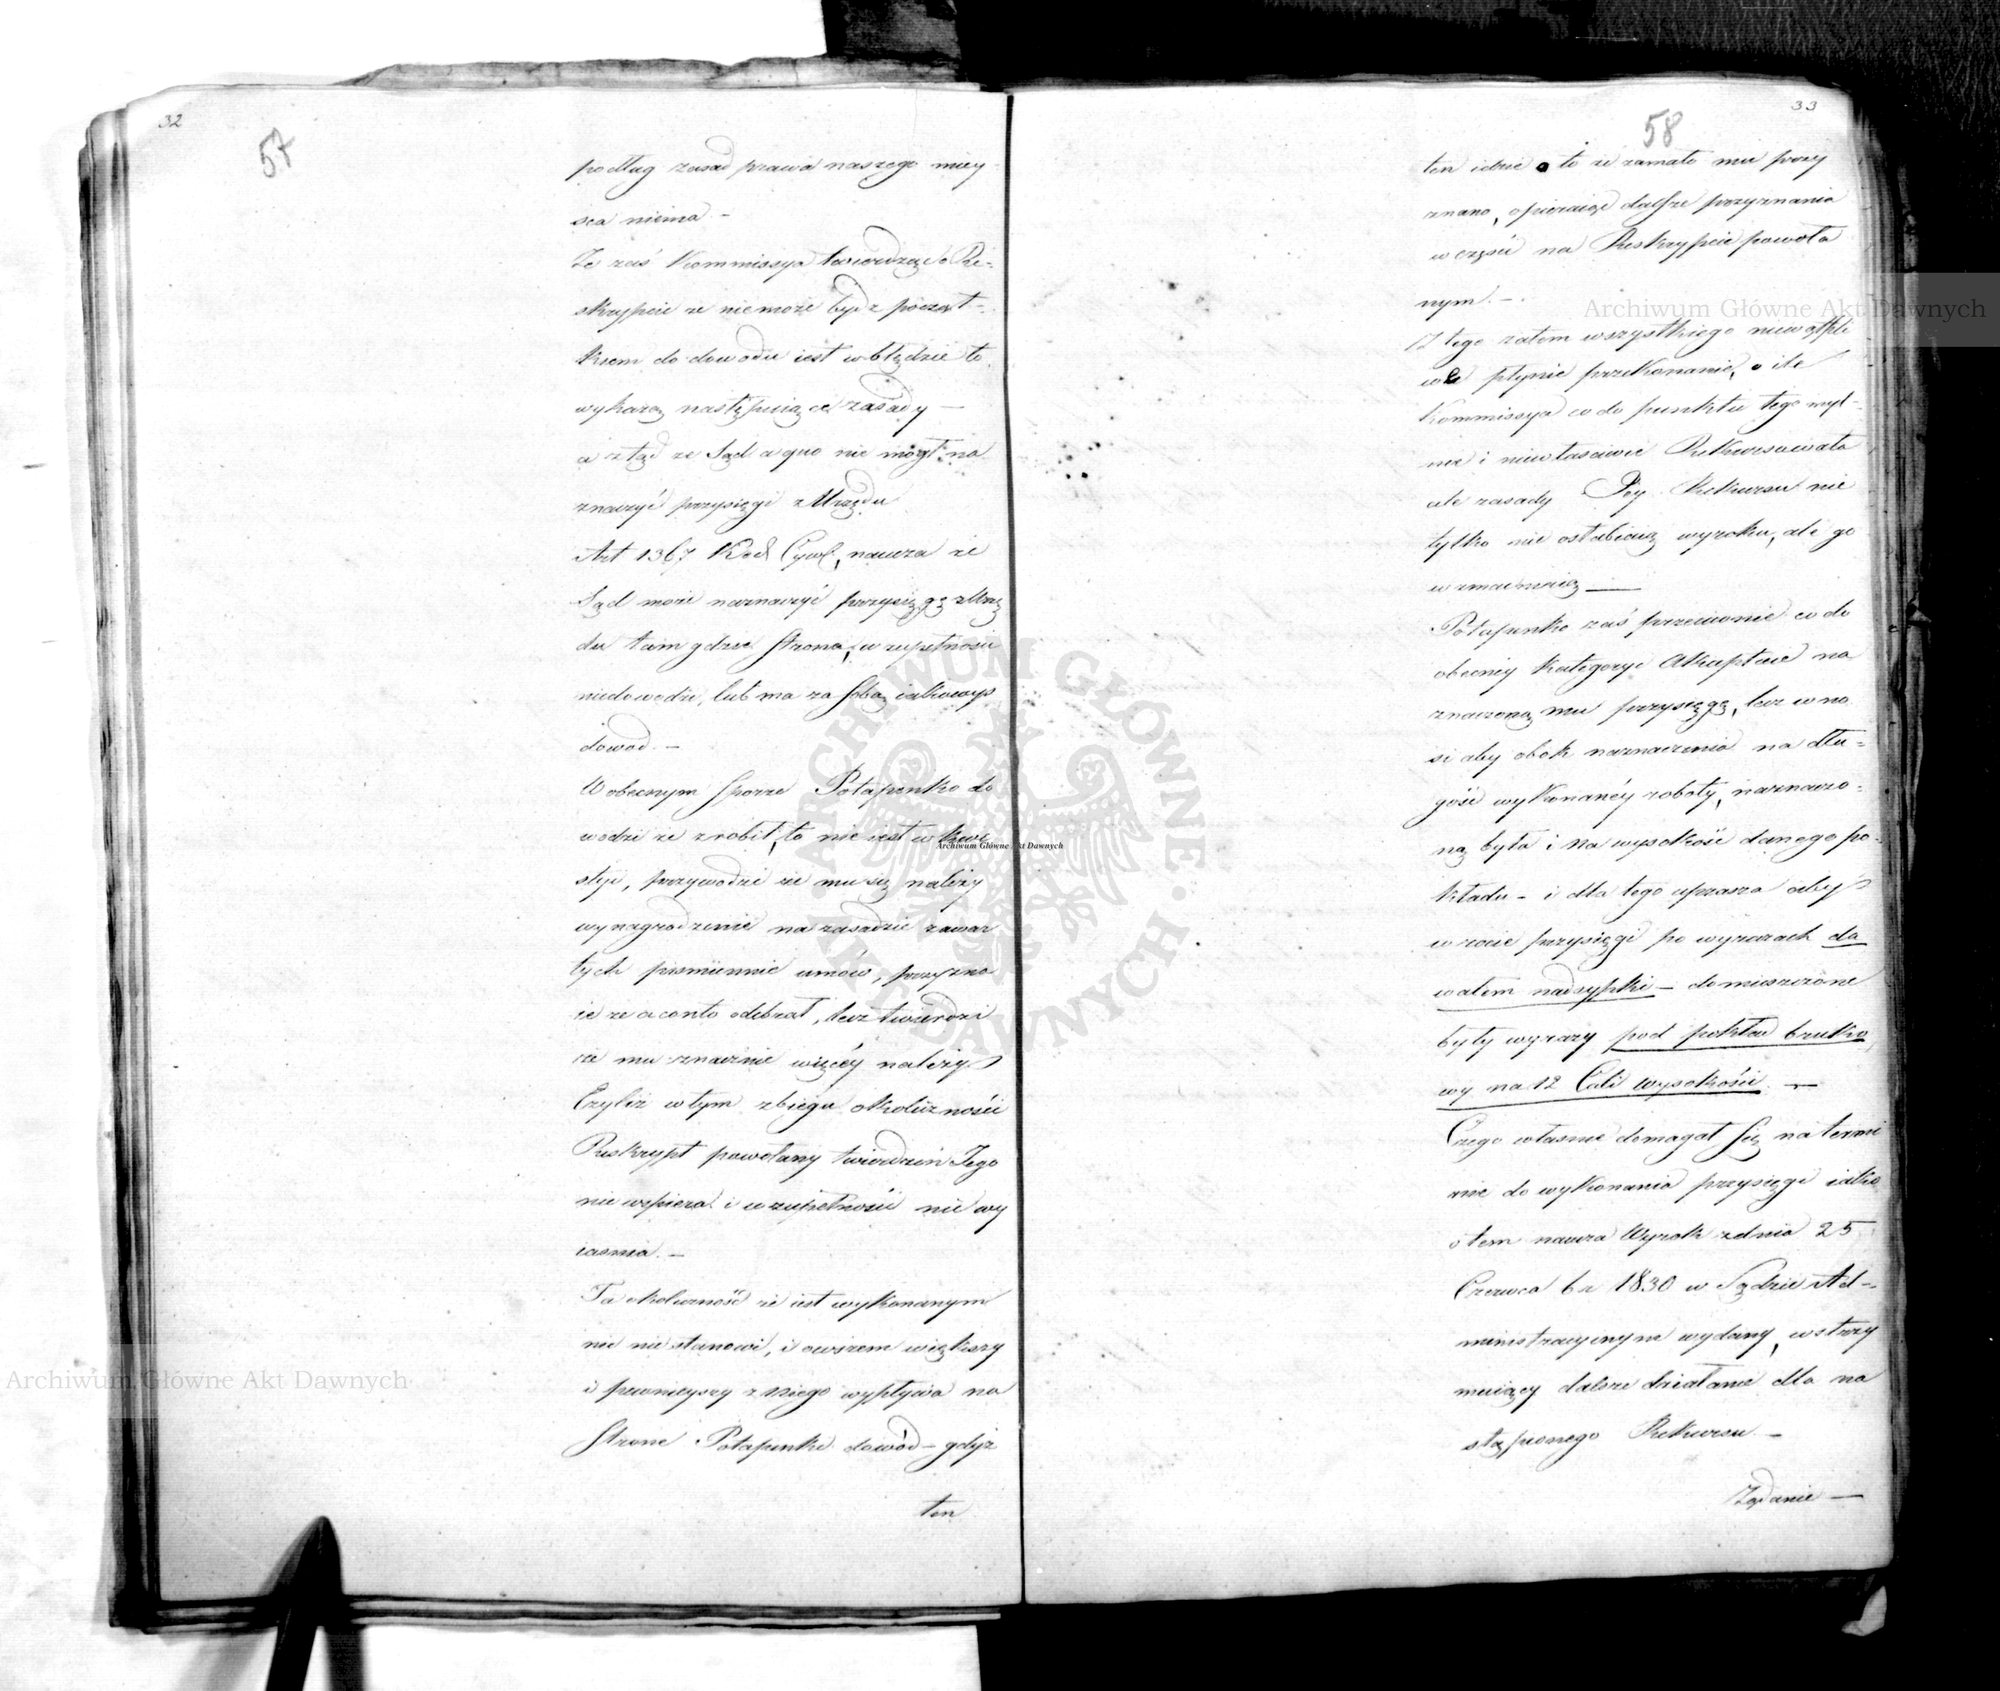 32
57
podług zasad prawa naszego miey
sca niema –
Ze zaś Kommissya twierdząc o Re-
skrypcie że niemoże bydź począt-
kiem do dowodu iest w błędzie to
wykażą następuiące zasady –
a ztąd że Sąd a quo nie mógł na
znaczyć przysięgi z Urzędu
Art 1367 Kod Cywil, naucza że
Sąd może naznaczyć przysięgę z Urzę
du tam gdzie Strona, w zupełności
niedowodzi, lub ma za sobą iakowyś
dowod. –
W obecnym Sporze Potapenko do
wodzi że zrobił, to nie iest w kwe
styi, przywodzi że mu się należy
wynagrodzenie na zasadzie zawar
tych piśmiennie umów, przyzna
ie że a conto odebrał, lecz twierdzi
że mu znacznie więcéy należy
Czyliż w tym zbiegu okoliczności
Reskrypt powołany twierdzeń Jego
nie wspiera i w zupełności nie wy
iasnia. –
Ta okoliczność że iest wykonanym
nic nie stanowi, i owszem większy
i pewnieyszy z niego wypływa na
Stronę Potapenki dowód – gdyż
ten
33
58
ten idzie o to że zamało mu przy
znano, opieraiąc dalsze przyznania
w części na Reskrypcie powoła
nym. –
Z tego zatem wszystkiego niewątpli
we płynie przekonanie, o ile
Kommissya co do punktu tego myl-
nie i niewłaściwie Rekursowała
ale zasady Jey Rekursu nie
tylko nie osłabiaią wyroku, ale go
wzmacniaią –
Potapenko zaś przeciwnie co do
obecnéy kategoryi Akceptuie na
znaczoną mu przysięgę, lecz wno
si aby obok naznaczenia na dłu-
gość wykonanéy roboty, naznaczo-
ną była i na wysokość danego po-
kładu – i dla tego uprasza aby
w rocie przysięgi po wyrazach da
wałem nadsypki – domieszczone
były wyrazy pod pokład bruko
wy na 12 Cali wysokości. –
Czego własnie domagał się na termi
nie do wykonania przysięgi iako
o tem naucza Wyrok z dnia 25
Czerwca b r 1830 w Sądzie Ad-
ministracyinym wydany, wstrzy
muiący dalsze działanie dla na
stąpionego Rekursu –
Żądanie –
Archiwum Główne Akt Dawnych
Archiwum Główne Akt Dawnych
Archiwum Główne Akt Dawnych
ARCHIWUM GŁÓWNE AKT DAWNYCH